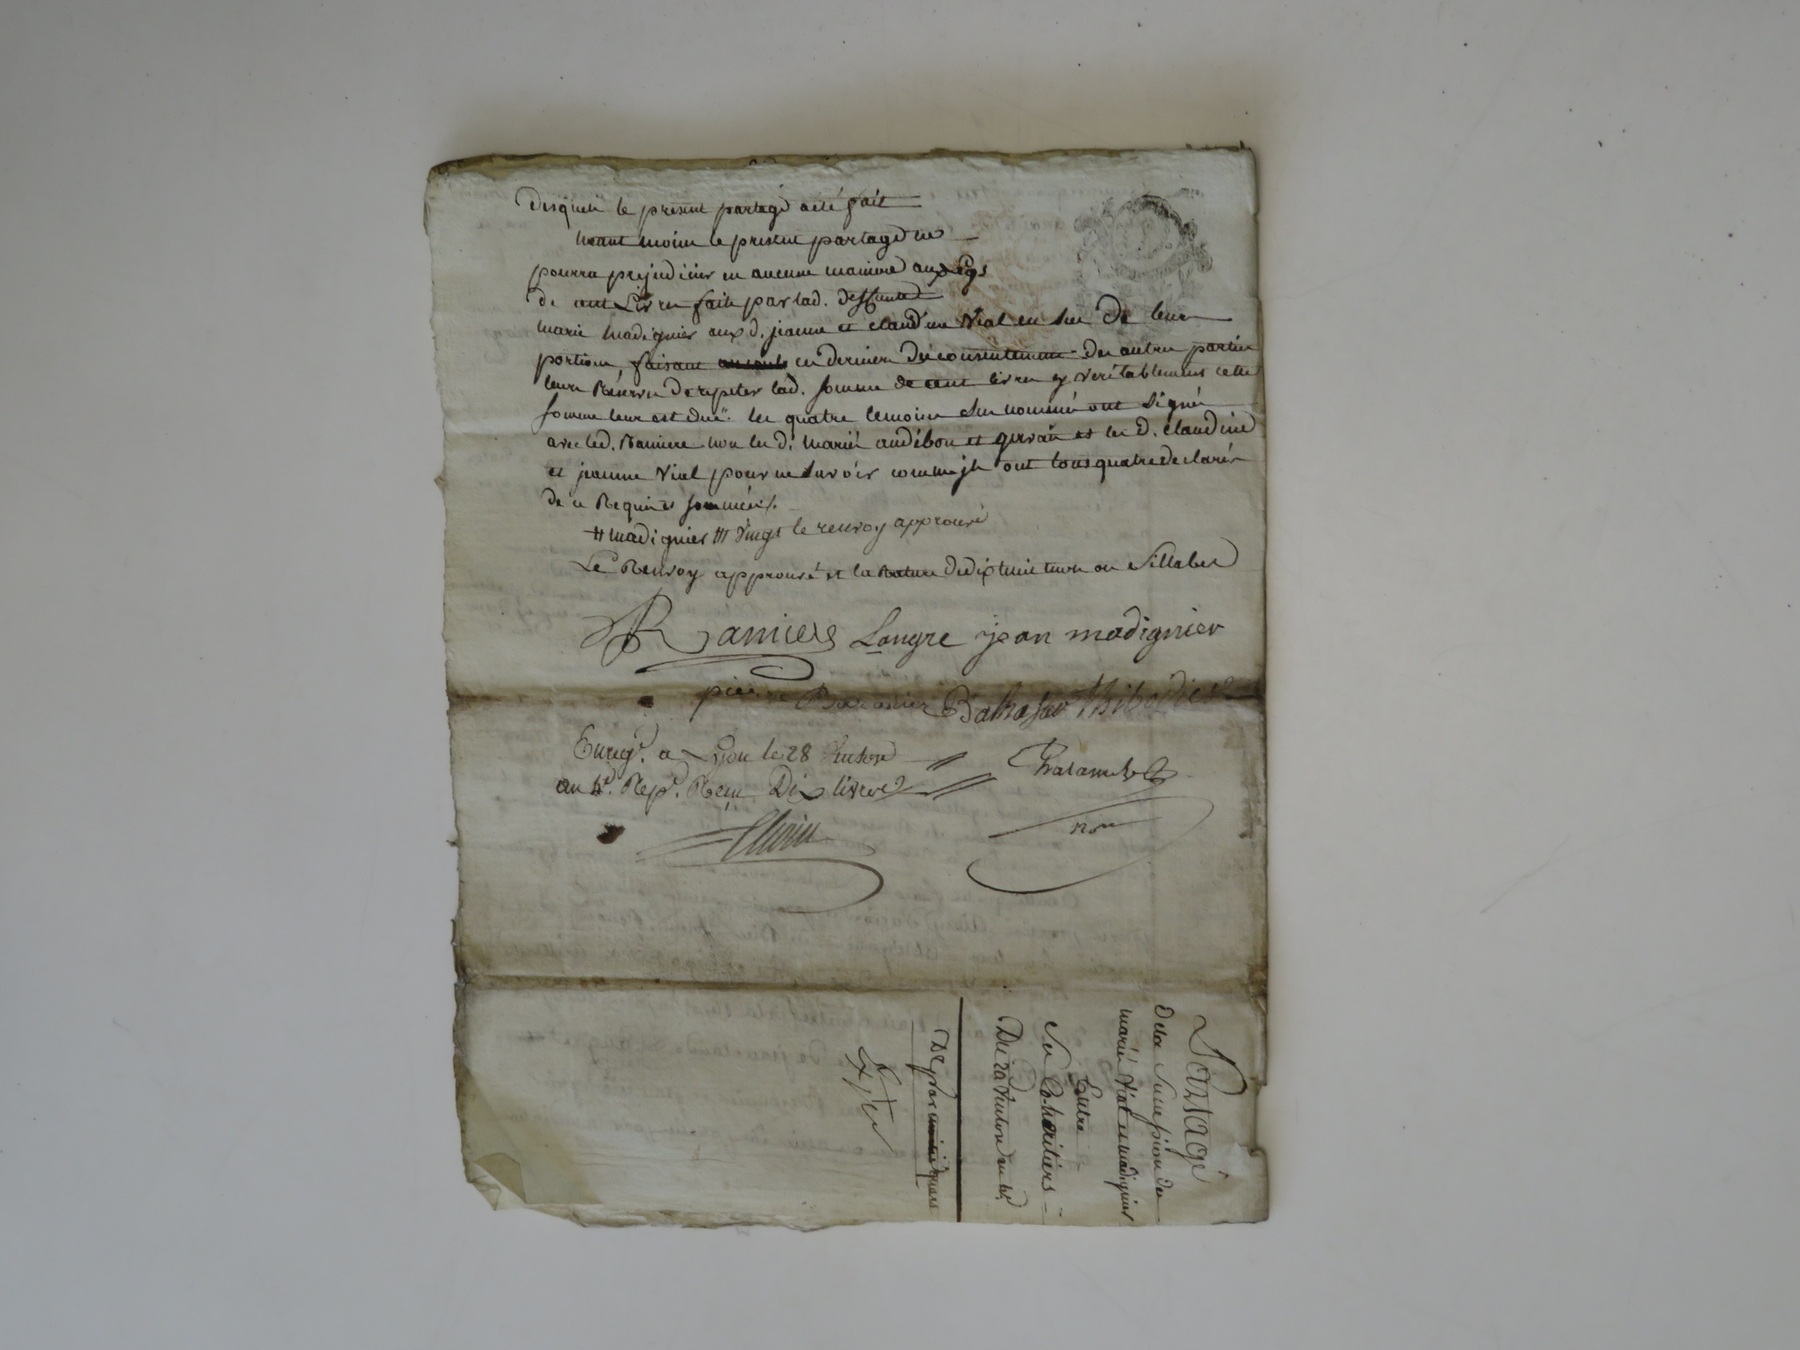 desquels le present partage a eté fait
neant moins le present partage ne
pourra prejudicier en aucune maniere aux legs
de cent Livres fait par lad. deffunte
marie madignier aux d. jeanne et claudine Vial en sus de leur
portion faisant en derniere de consentement des autres parties
leurs Réserve de repeter lad. somme de cent livres sy veritablement cette
somme leur est due. les quatre temoins sus nommés ont signé
avec led. Ramiere non les d. marie audibou et gervais et les d. claudine
et jeanne Vial pour ne savoir comme jls ont tous quatre declarés
de ce Requis et sommés.
# madignier ## vingt le renvoy approuvé
Le Renvoy approuvé et la Rature de dixhuit mots ou sillabes
Ramiere Langre jean madignier
pierre Balthasar Thibodier
Enreg. a Lyon le 28 Vintose
an 4e. Rep. Reçu Dix livres
Partage
De la Succession de
marie Vial et madignier
Entre
Ses Cohéritiers
Du 20 Vintose an 4e